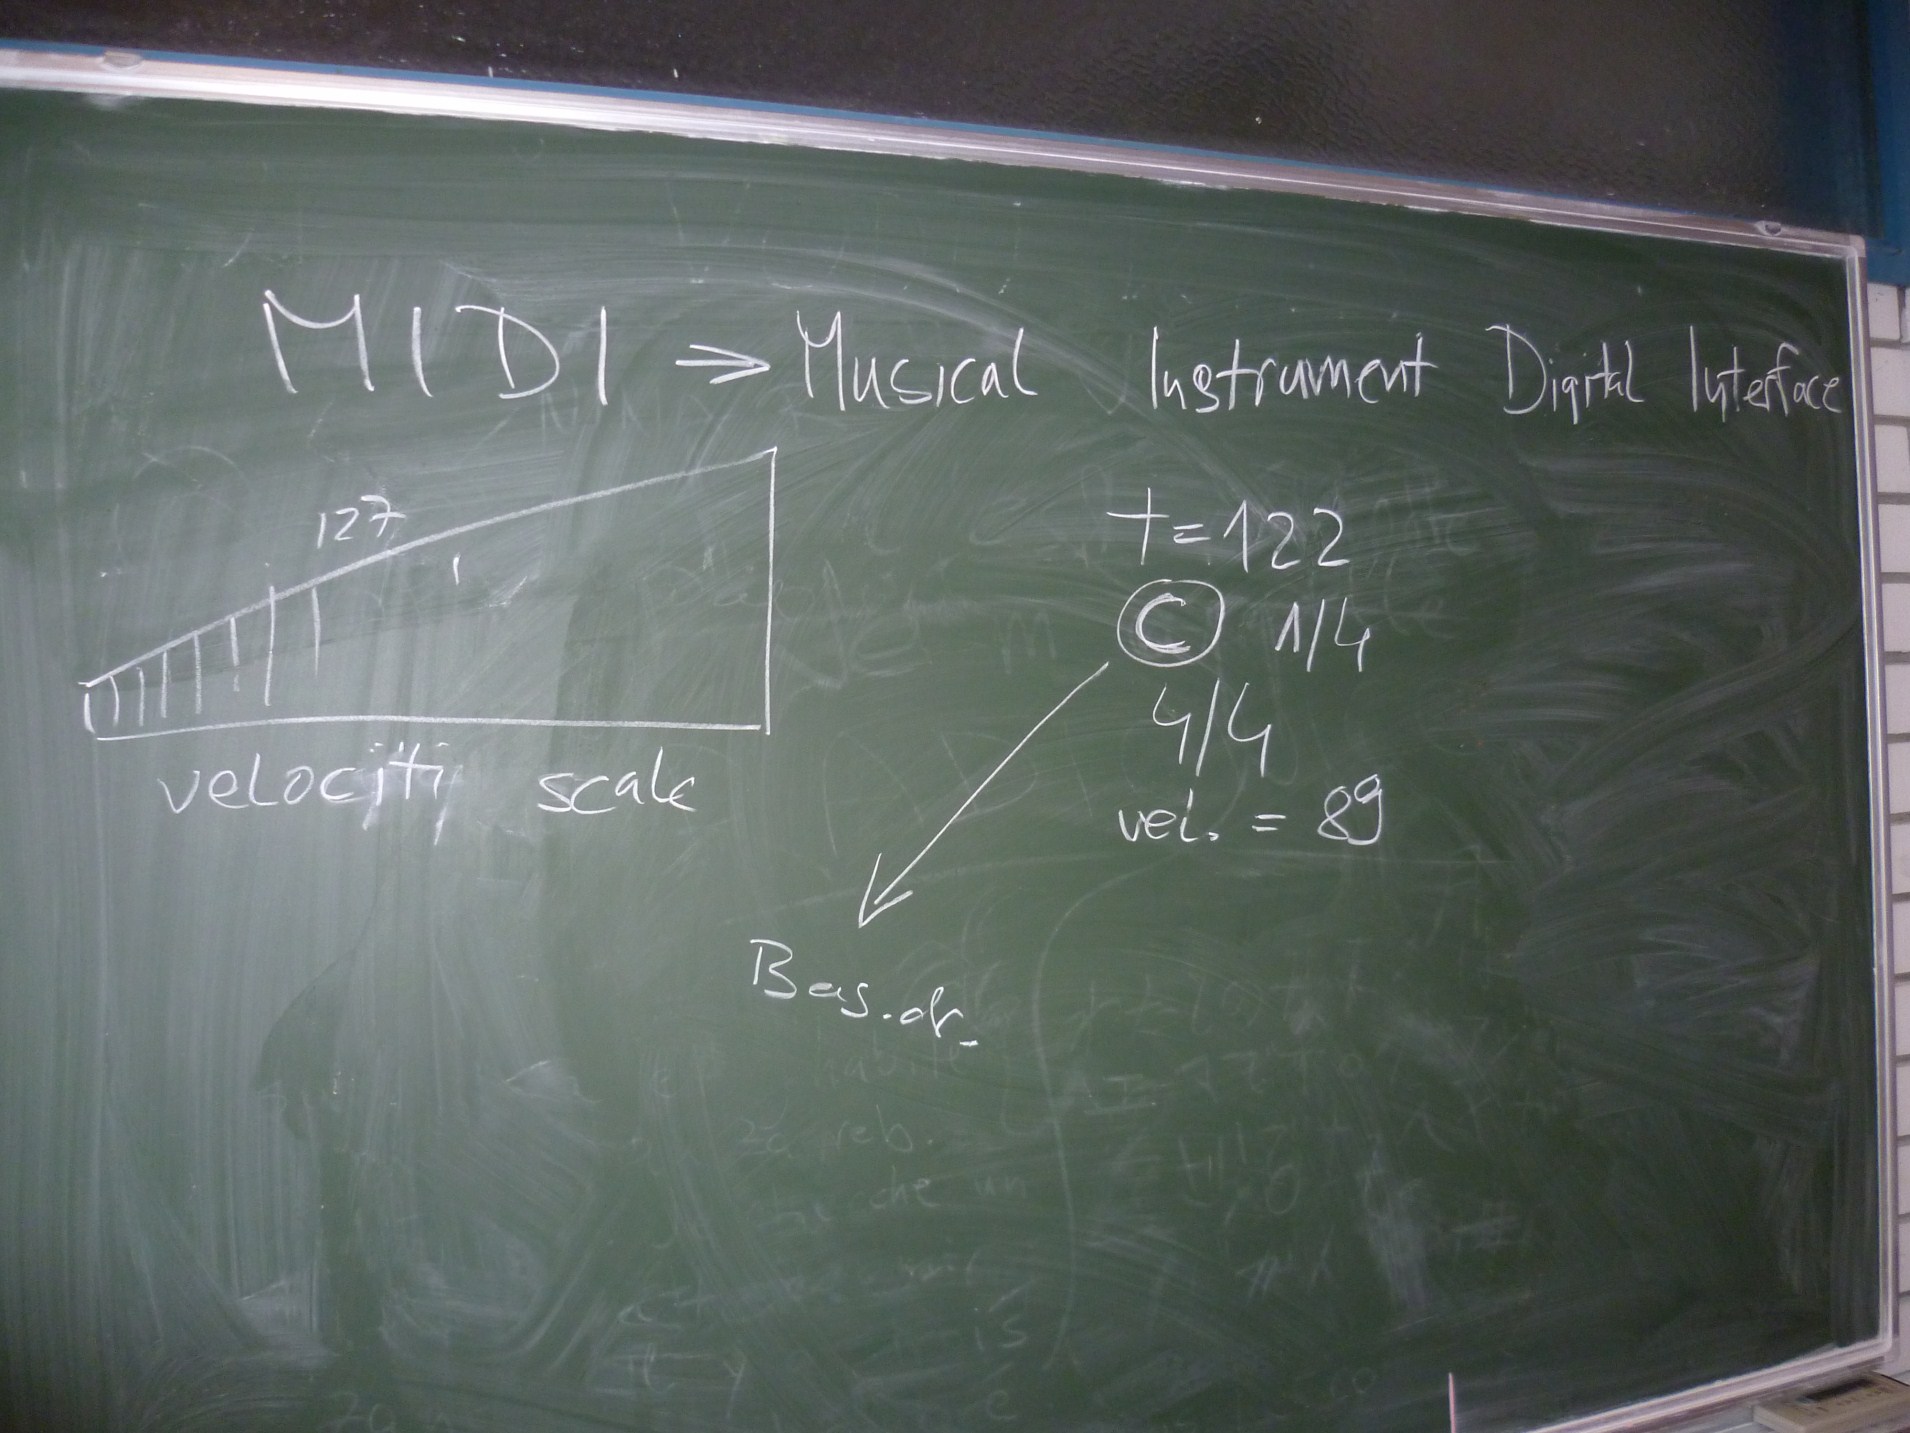 MIDI ⇒ Musical Instrument Digital Interface
127
velocitij scale
T=122
C 1/4
4/4
vel. = 89
Bas. dr.